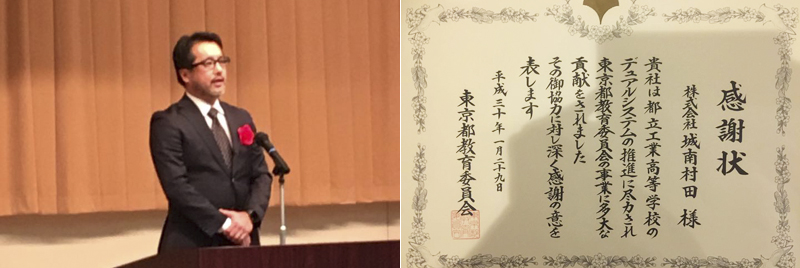 感謝状
株式会社 城南村田 様
貴社は都立工業高等学校の
デュアルシステムの推進に尽力され
東京都教育委員会の事業に多大な
貢献をされました
その御協力に対し深く感謝の意を
表します
平成三十年一月二十九日
東京都教育委員会